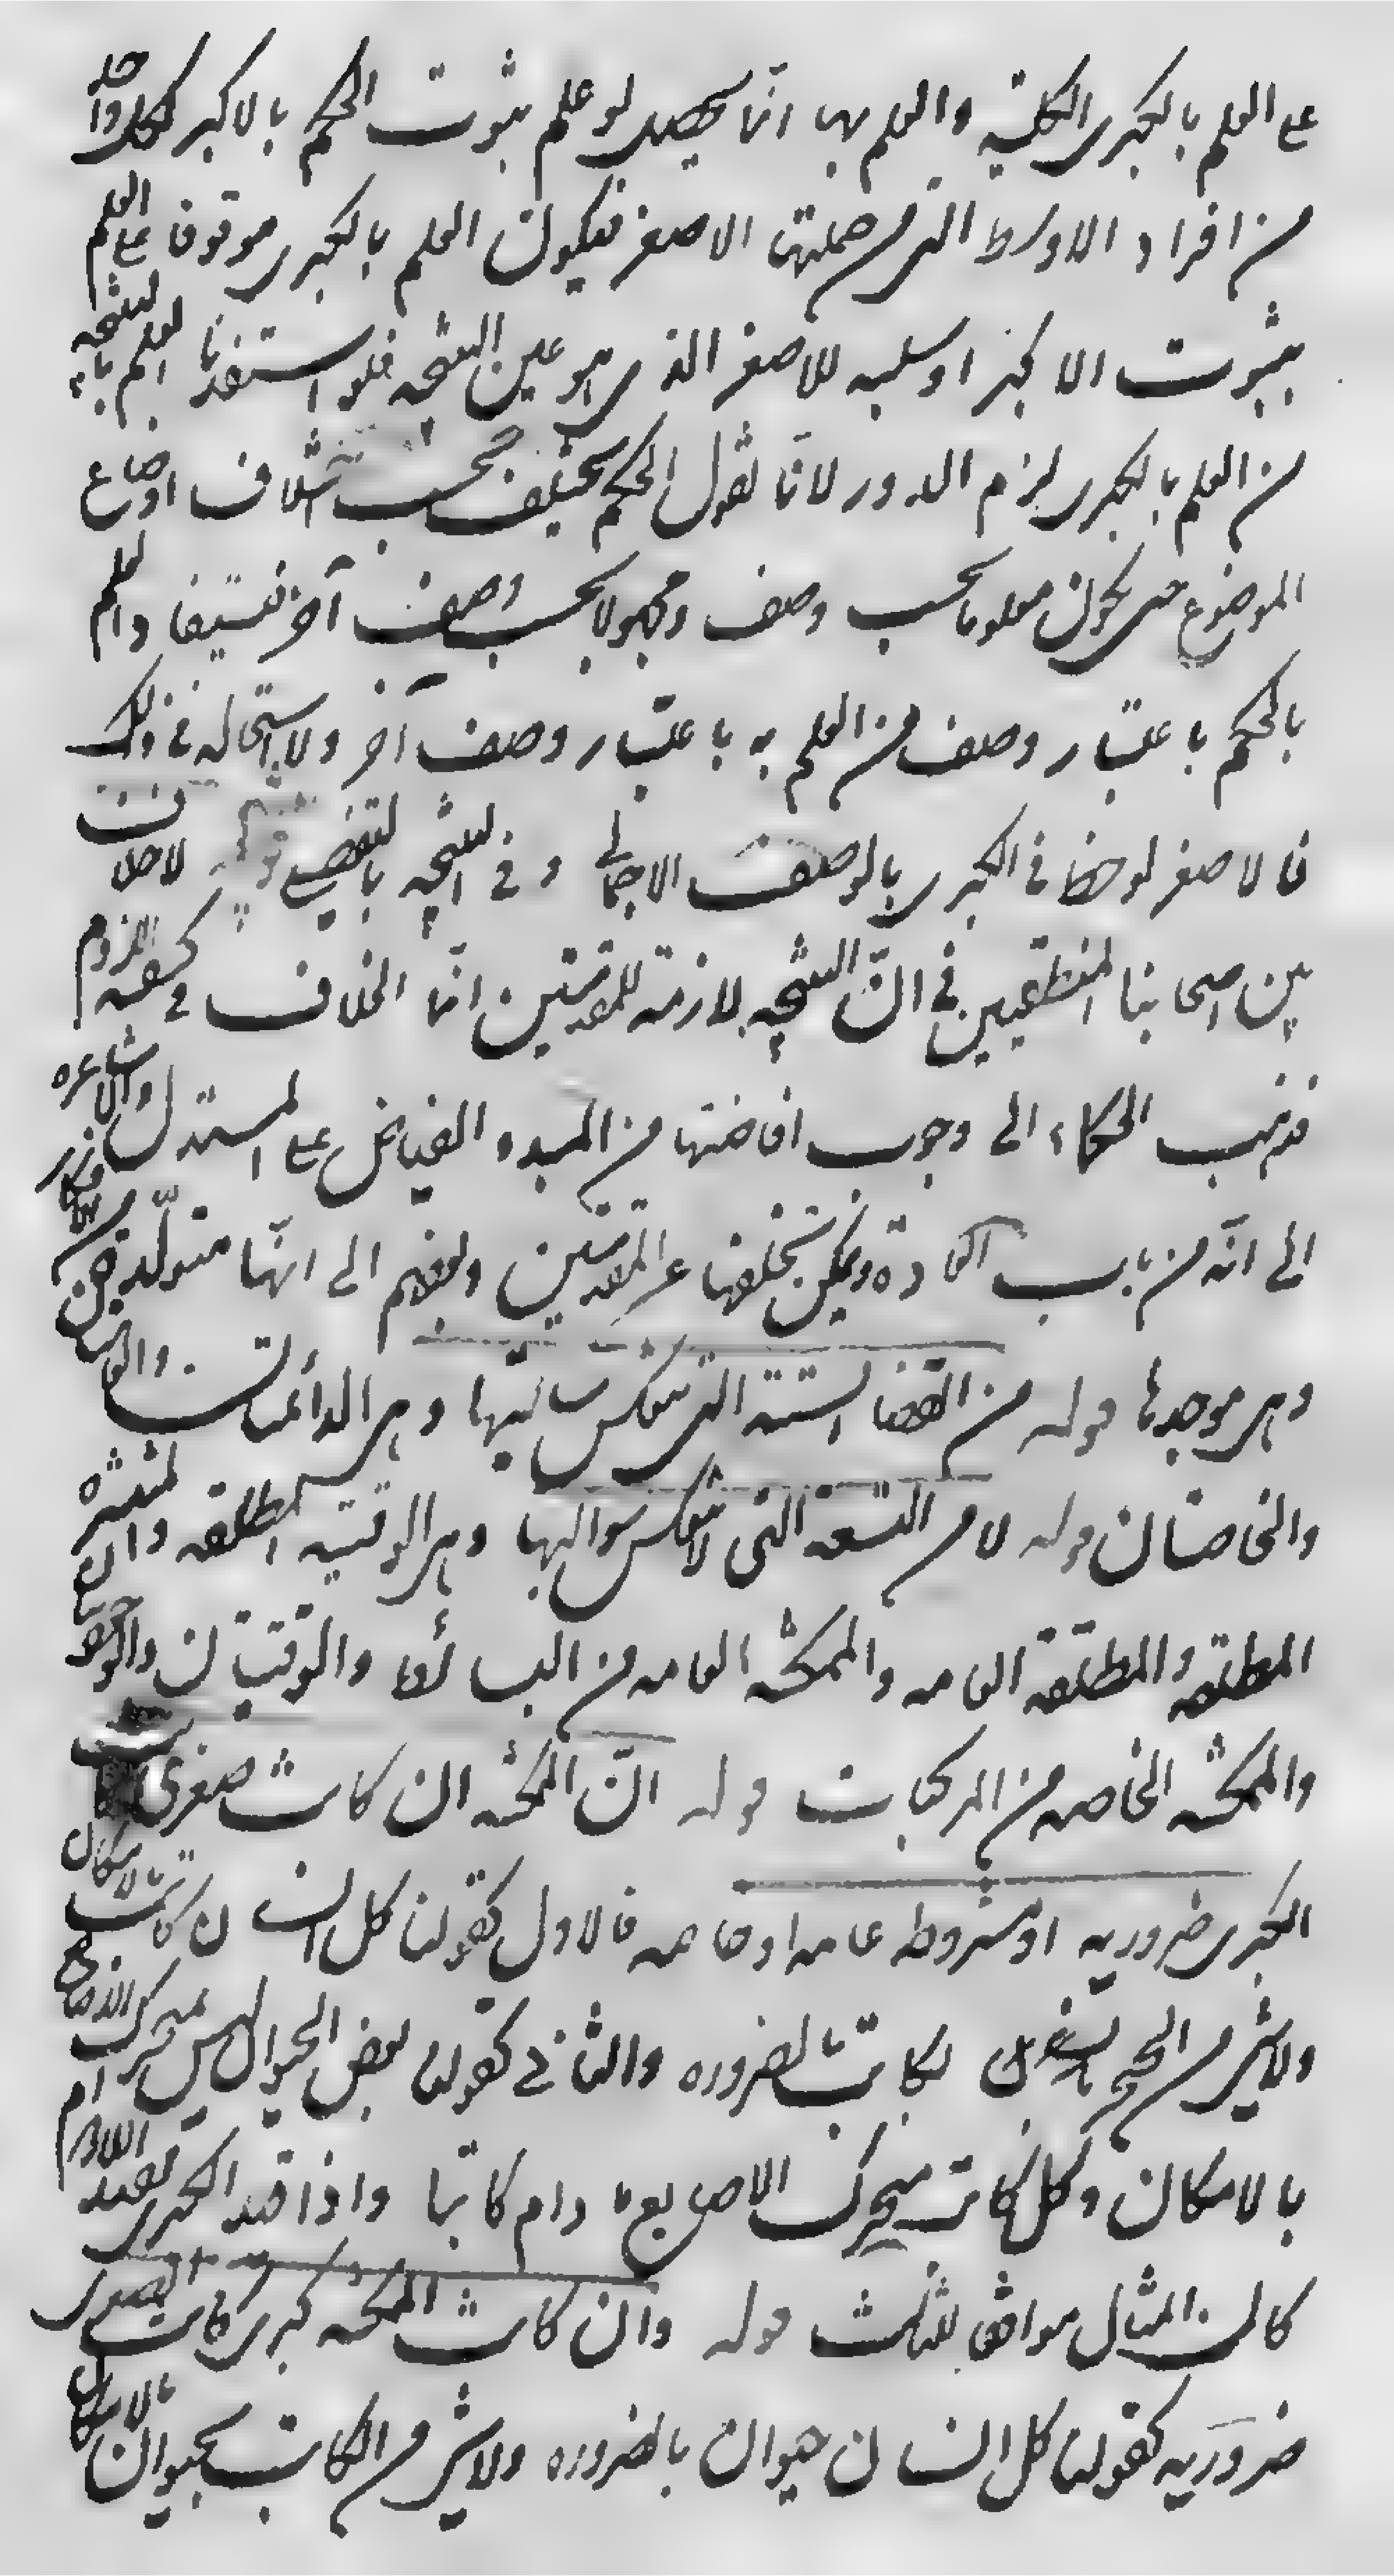 على العلم بالكبرى الكلية والعلم بها انّما يحصل لو علم بثبوت الحكم بالاكبر لكل واحد
من افراد الاوسط التي من جملتها الاصغر فيكون العلم بالكبرى موقوفا على العلم
بثبوت الاكبر او سلبه للاصغر الذي هو عين النتيجه فلو استفدنا العلم بالنتيجه
من العلم بالكبرى لزم الدور لانّا نقول الحكم يختلف بحسب اختلاف اوضاع
الموضوع حتى يكون معلوما بحسب وصف ومجهولا بحسب وصف آخر فنستفيد العلم
بالحكم باعتبار وصف من العلم به باعتبار وصف آخر ولا استحاله في ذلك
فالاصغر لوحظ في الكبرى بالوصف الاجمالي وفي النتيجه بالتفصيلي قوله لا خلاف
بين اصحابنا المنطقيين في انّ النتيجه لازمة للمقدمتين انّما الخلاف في كيفيه اللزوم
فذهب الحكماء الى وجوب افاضتها من المبدء الفياض على المستدل والاشاعره
الى انّه من باب العادة ويمكن تخلفها عن المقدمتين وبعضهم الى انّها متولّدة من
وهي موجدها قوله من القضايا الستة التي تنعكس سالبتها وهي الدائمتان والعامتان
والخاصتان قوله لا من التسعة التي لا تنعكس سوالبها وهي الوقتيه المطلقه والمنتشره
المطلقه والمطلقة العامه والممكنه العامه من البسائط والوقتيتان والوجوديتان
والممكنه الخاصه من المركبات قوله انّ الممكنه ان كانت صغرى كانت
الكبرى ضروريه او مشروطه عامه او خاصه فالاول كقولنا كل انسان كاتب بالامكان
ولا شيء من الحجر بكاتب بالضروره والثاني كقولنا بعض الحيوان ليس بمتحرك
بالامكان وكل كاتب متحرك الاصابع ما دام كاتبا واذا قيد الكبرى بقيد اللادوام
كان المثال موافق للثالث قوله وان كانت الممكنه كبرى كانت الصغرى
ضروريه كقولنا كل انسان حيوان بالضروره ولا شيء من الكاتب بحيوان بالامكان